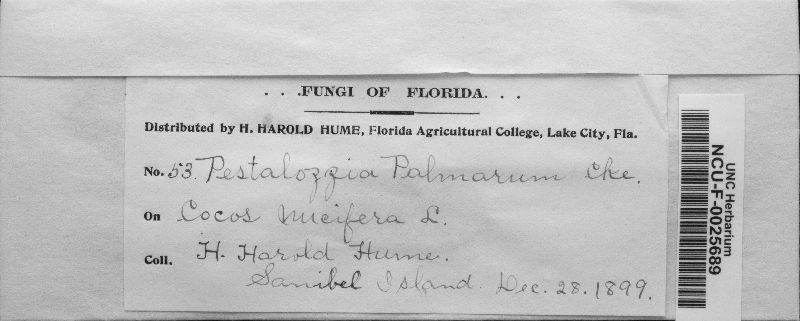 . . .FUNGI OF FLORIDA. . .
Distributed by H. HAROLD HUME, Florida Agricultural College, Lake City, Fla.
No. 53. Pestalozzia Palmarum Cke.
On Cocos nucifera L.
Coll. H. Harold Hume.
Sanibel Island. Dec. 28. 1899.
UNC Herbarium
NCU-F-0025689